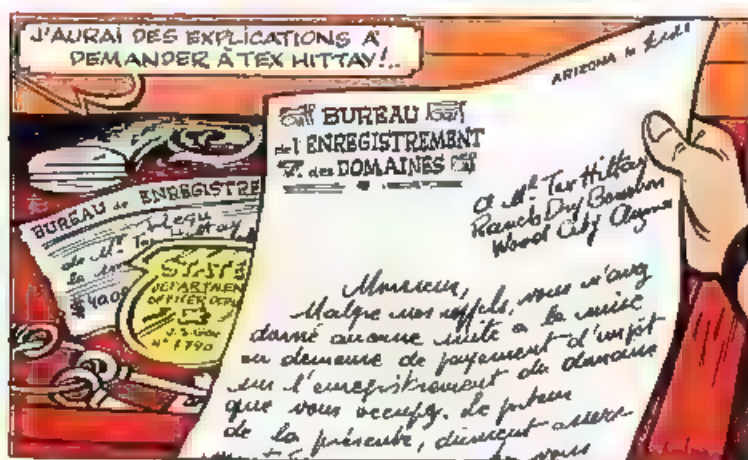 J'AURAI DES EXPLICATIONS A
DEMANDER À TEX HITTAY!..
ARIZONA le
BUREAU
de l'ENREGISTREMENT
& des DOMAINES
A Mr Tex Hittay
Ranch Dry Bourbon
Wood City
Monsieur,
Malgré nos appels, vous n'avez
donné aucune suite a la mise
en demeure de payement d'impôt
sur l'enregistrement du domaine
que vous occupez. Le porteur
de la présente, dûment
vous
BUREAU de ENREGISTRE
de Mr Tex Hittay
la
STATE
DEPARTMEN
OFFICER
N° 1790